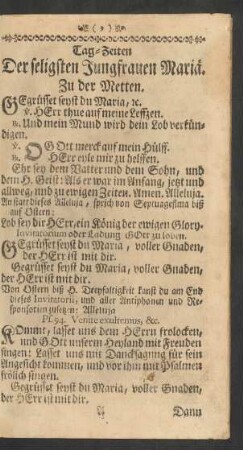 ( 9 )
Tag-Zeiten
Der seligsten Jungfrauen Mariä.
Zu der Metten.
GEgrüsset seyst du Maria, ꝛc.
℣. HErr thue auf meine Leffzen.
℟. Und mein Mund wird dein Lob verkün-
digen.
℣. OGott merck auf mein Hülff.
℟. HErr eyle mir zu helffen.
Ehr sey dem Vatter und dem Sohn, und
dem H. Geist: Als er war im Anfang, jetzt und
allweg, und zu ewigen Zeiten. Amen. Alleluja.
An statt dieses Alleluja, sprich von Septuagesima biß
auf Ostern:
Lob sey dir HErr, ein König der ewigen Glory.
Invitatorium oder Ladung GOtt zu loben.
GEgrüsset seyst du Maria, voller Gnaden,
der HErr ist mit dir.
Gegrüsset seyst du Maria, voller Gnaden,
der HErr ist mit dir.
Von Ostern biß H. Dreyfaltigkeit kanst du am End
dieses Invitatorii, und aller Antiphonen und Re-
sponsorien setzen: Alleluja
Ps. 94. Venite exultemus, &c.
KOmmt, lasset uns dem HErrn frolocken,
und GOtt unserm Heyland mit Freuden
singen: Lasset uns mit Dancksagung für sein
Angesicht kommen, und vor ihm mit Psalmen
frölich singen.
Gegrüsset seyst du Maria, voller Gnaden,
der HErr ist mit dir.
Dann